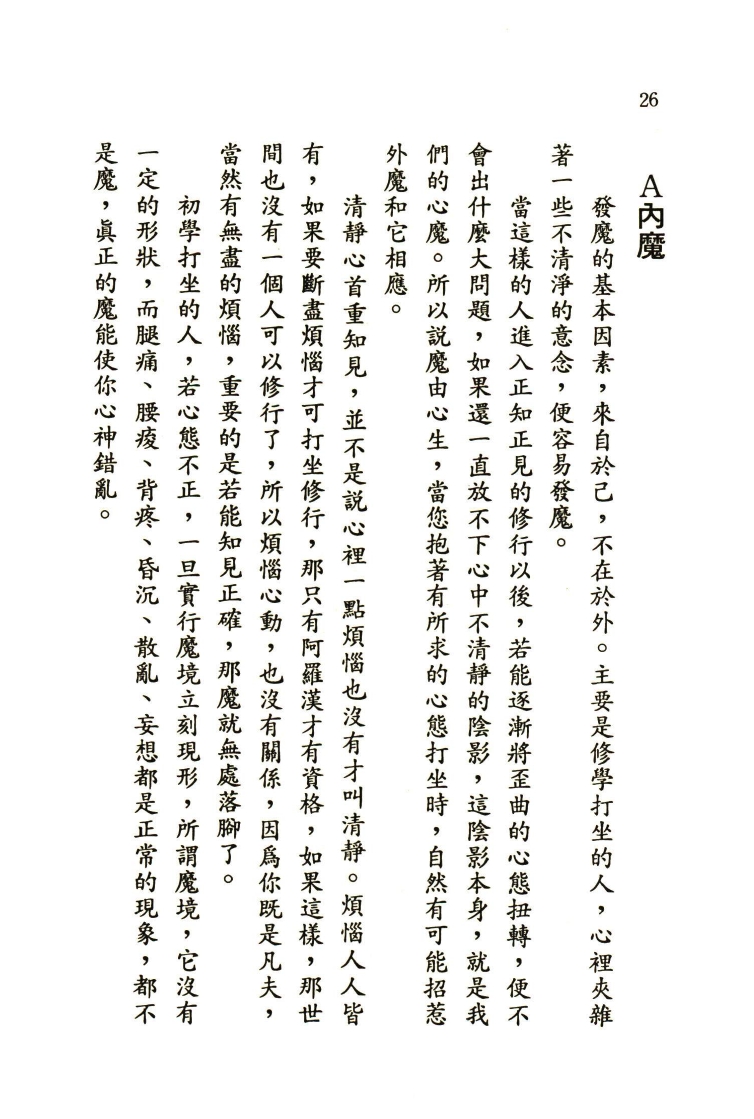 26
A內魔
發魔的基本因素，來自於己，不在於外。主要是修學打坐的人，心裡夾雜
著一些不清淨的意念，便容易發魔。
當這樣的人進入正知正見的修行以後，若能逐漸將歪曲的心態扭轉，便不
會出什麼大問題，如果還一直放不下心中不清靜的陰影，這陰影本身，就是我
們的心魔。所以說魔由心生，當您抱著有所求的心態打坐時，自然有可能招惹
外魔和它相應。
清靜心首重知見，並不是說心裡一點煩惱也沒有才叫清靜。煩惱人人皆
有，如果要斷盡煩惱才可打坐修行，那只有阿羅漢才有資格，如果這樣，那世
間也沒有一個人可以修行了，所以煩惱心動，也沒有關係，因爲你既是凡夫，
當然有無盡的煩惱，重要的是若能知見正確，那魔就無處落腳了。
初學打坐的人，若心態不正，一旦實行魔境立刻現形，所謂魔境，它沒有
一定的形狀，而腿痛、腰痠、背疼、昏沉、散亂、妄想都是正常的現象，都不
是魔，眞正的魔能使你心神錯亂。